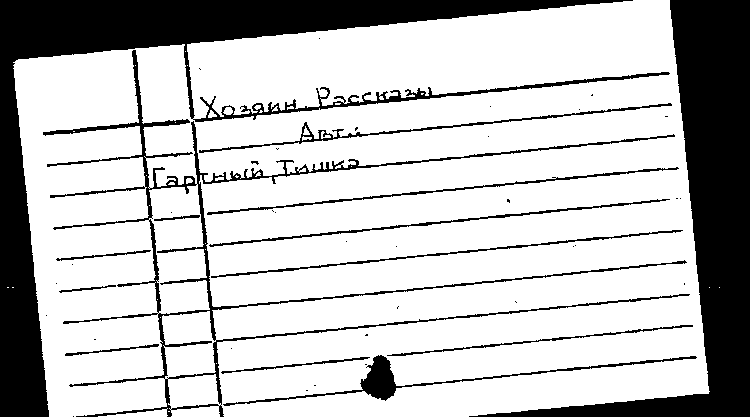 Хозяин. Рассказы
Авт.:
Гартный, Тишка